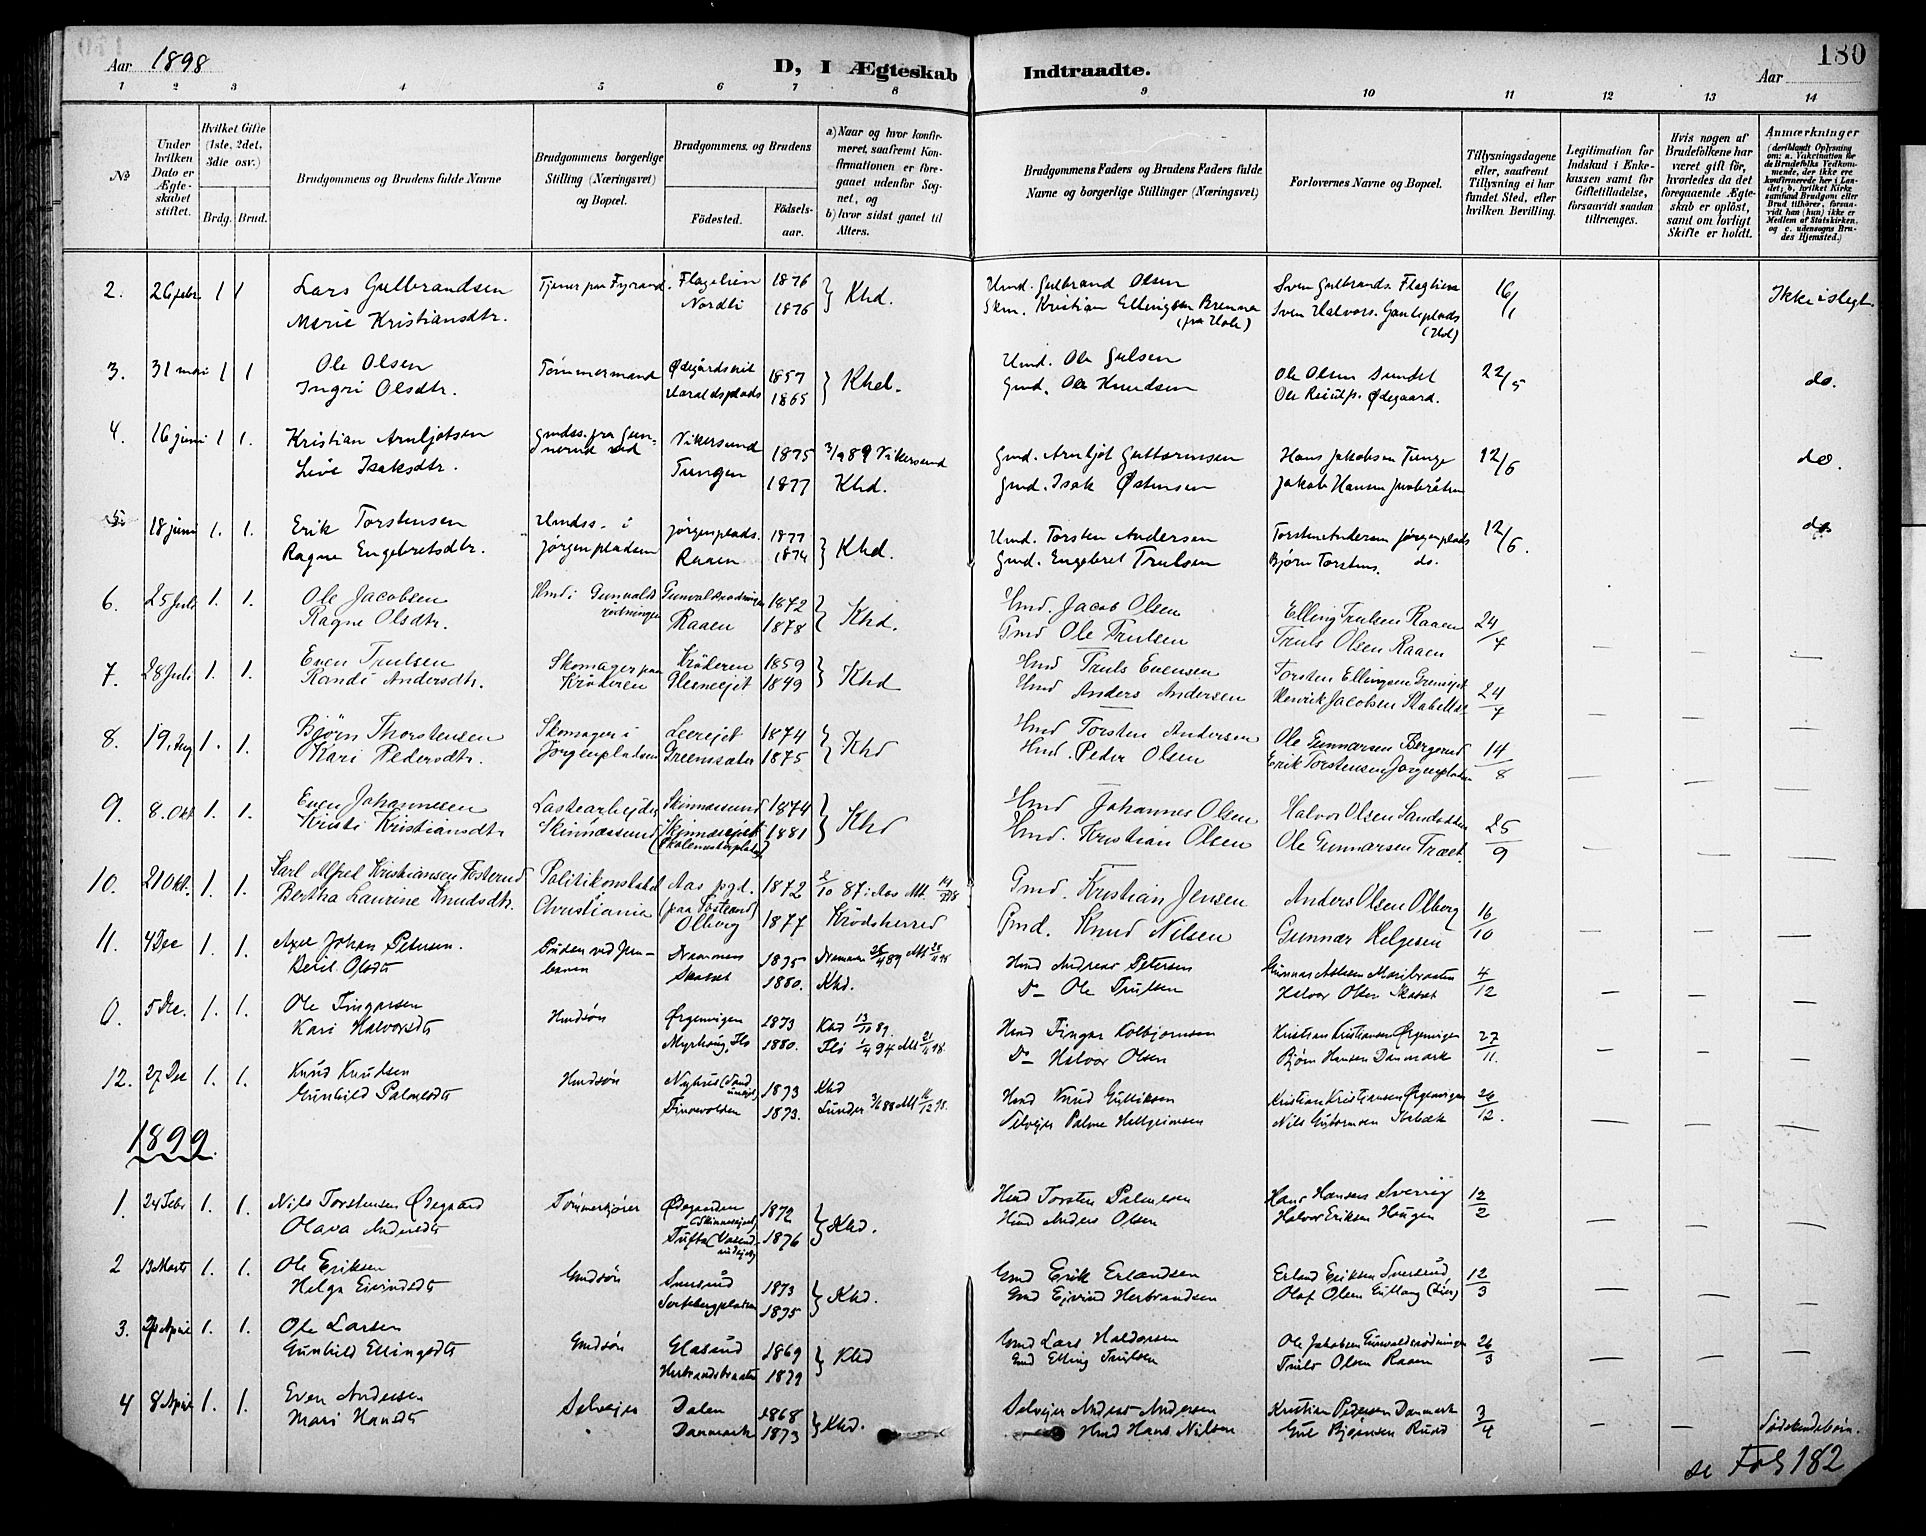 180
Aar 1898
D, I Ægteskab Indtraadte.
Aar
1 2 3 4 5 6 7 8 9 10 11 12 13 14
№
Under hvilken Dato er Ægteskabet stiftet.
Hvilket Gifte (1ste, 2det, 3die osv.)
Brdg. Brud.
Brudgommens og Brudens fulde Navne
Brudgommens borgerlige Stilling (Næringsvei) og Bopæl.
Brudgommens og Brudens
Födested.
Födselsaar.
a) Naar og hvor konfirmeret, saafremt Konfirmationen er foregaaet udenfor Sognet, og
b) hvor sidst gaaet til Alters.
Brudgommens Faders og Brudens Faders fulde Navne og borgerlige Stillinger (Næringsvei)
Forlovernes Navne og Bopæl.
Tillysningsdagene eller, saafremt Tillysning ei har fundet Sted, efter hvilken Bevilling.
Legitimation for Indskud i Enkekassen samt for Giftetilladelse, forsaavidt saadan tiltrænges.
Hvis nogen af Brudefolkene har været gift før, hvorledes da det foregaaende Ægteskab er opløst, samt om lovligt Skifte er holdt.
Anmærkninger (deriblandt Oplysning om: a. Vakcination for de Brudefolks Vedkommende, der ikke ere konfirmerede her i Landet; b. hvilket Kirkesamfund Brudgom eller Brud tilhører, forsaavidt han (hun) ikke er Medlem af Statskirken, og c. udensogns Brudes Hjemsted.)
2. 26 febr. 1 1 Lars Gulbrandsen Tjener paa Fyrand. Flagelien 1876 } Khd. Hmd. Gulbrand Olsen Sven Gulbrands. Flaglien 16/1 Ikke i slegt.
Marie Kristiansdtr. Nordli 1876 Skm. Kristian Ellingsen Bremnes (fra Hole) Sven Halvors. Ganteplads (Hol)
3. 31 mai 1 1 Ole Olsen Tømmermand Ødegårdseiet 1857 } Khd. Hmd. Ole Gulsen Ole Olsen Sundet 22/5 do.
Ingri Olsdtr. Haraldsplads 1865 Gmd. Ole Knudsen Ole Ødegaard.
4. 16 juni 1 1. Kristian Arnljotsen Gmdss. fra Vikersund 1875 3/1089 Vikersund Gmd. Arnljot Guttormsen Hans Jakobsen Tunge 12/6 do.
Live Isaksdtr. Tungen 1877 Khd. Gmd. Isak Østensen Jakob Hansen
5. 18 juni 1. 1. Erik Torstensen Hmdss. i Jørgenpladsen Jørgenplads. 1877 } Khd. Hmd. Torsten Andersen Torsten Andersen Jørgenplads 12/6. do.
Ragne Engebretsdtr. Raaen 1874 Gmd. Engebret Trulsen Bjørn Torstens. do.
6. 25 Juli 1. 1. Ole Jacobsen Hmd i Gunvaldsrødningen Gunvaldsrødningen 1872 } Khd. Hmd. Jacob Olsen Elling Trulsen Raaen 24/7
Ragne Olsdtr. Raaen 1878 Gmd Ole Trulsen Truls Olsen Raaen
7. 28 Juli 1. 1. Even Trulsen Skomager paa Krøderen Krøderen 1859 } Khd Hmd Truls Evensen Torsten Ellingsen Grensejet 24/7
Randi Andersdtr. Glesneejet 1849 Hmd Anders Andersen Henrik Jacobsen
8. 19. Aug 1. 1. Bjørn Thorstensen Skomager i Jørgenpladsen Leerejet 1874 } Khd Hmd Torsten Andersen Ole Gunnarsen Bergerud 14/8
Kari Pedersdtr. Greensæter 1875 Hmd. Peder Olsen Erik Torstensen Jørgenpladsen
9. 8. Okt 1. 1. Even Johannesen Lastearbejder Skinnessund 1874 } Khd Hmd Johannes Olsen Halvor Olsen Sandakten 25/9
Kristi Kristiansdtr Skinnæssund Skinnæsejet (Skolemesterpladsen) 1881 Hmd. Kristian Olsen Ole Gunnarsen Træet
10. 21 Okt. 1. 1. Karl Alfred Kristiansen Fosterud Politikonstabel Aas pgd. 1872 2/10 87 i Aas Alt. Gmd. Kristian Jensen Anders Olsen Olberg 16/10
Bertha Laurine Knudsdtr. Christiania (paa Fosterud) Olberg 1877 Krødsherred Gmd. Knud Nilsen Gunnar Helgesen
11. 4 Dec 1. 1. Axel Johan Petersen. ved Jernbanen Drammen 1875 Drammen 26/4 89 Alt Hmd Andreas Petersen Gunnar Maribraaten 4/12
Beril Olsdtr Skasset 1880. Khd. Do Ole Trulsen Halvor Olsen Skasset
0. 5 Dec. 1. 1. Ole Tingarsen Hmdsøn Ørgenvigen 1873 Khd 13/10 89. Hmd Tingar Kolbjørnsen Kristian Kristiansen Ørgenvigen 27/11.
Kari Halvorsdtr Myrhaug, Flø 1880. Flå 1/4 94 Alt 98. Do Halvor Olsen Bjørn Hansen Danmark
12. 27 Dec 1. 1. Knud Knudsen Hmdsøn Nyhus 1873 Khd Hmd Knud Gulliksen Kristian Kristiansen Ørgenvigen 26/12.
Gunhild Palmesdtr 1873. Sunder 3/6 88 Alt 16/12 98. Selvejer Palme Hellgeirnsen Nils Guttormsen
1899.
1. 24 Febr 1. 1. Nils Torstensen Ødegaard Tømmerkjører Ødegaarden (Skinnesejet) 1872 } Khd. Hmd Torsten Palmesen Hans Hansen 12/2
Olava Andersdtr Tufta 1876 Hmd Anders Olsen Halvor Eriksen Haugen
2 13 Marts 1. 1. Ole Eriksen Gmdsøn Snersrud 1873 } Khd. Gmd Erik Erlandsen Erland Eriksen Snersrud 12/3
Helga Eivindsdtr Sortebergpladsen 1875 Gmd Ejvind Herbrandsen Olaf Olsen
3. April 1. 1. Ole Larsen Gmdsøn Glasrud 1869 } Khd Gmd Lars Haldorsen Ole Jakobsen Gunvaldsrødningen 26/3
Gunhild Ellingsdtr Herbrandsbraaten 1879 Gmd Elling Trulsen Truls Olsen Raaen
4 8 April 1. 1. Even Andersen Selvejer Dalen 1868 } Khd. Selvejer Anders Andersen Kristian Pedersen Danmark 3/4 Sødskendebørn.
Mari Hansdtr Danmark 1873 Hmd Hans Nilsen Gul Bjørnsen Ruud
se Fol 182